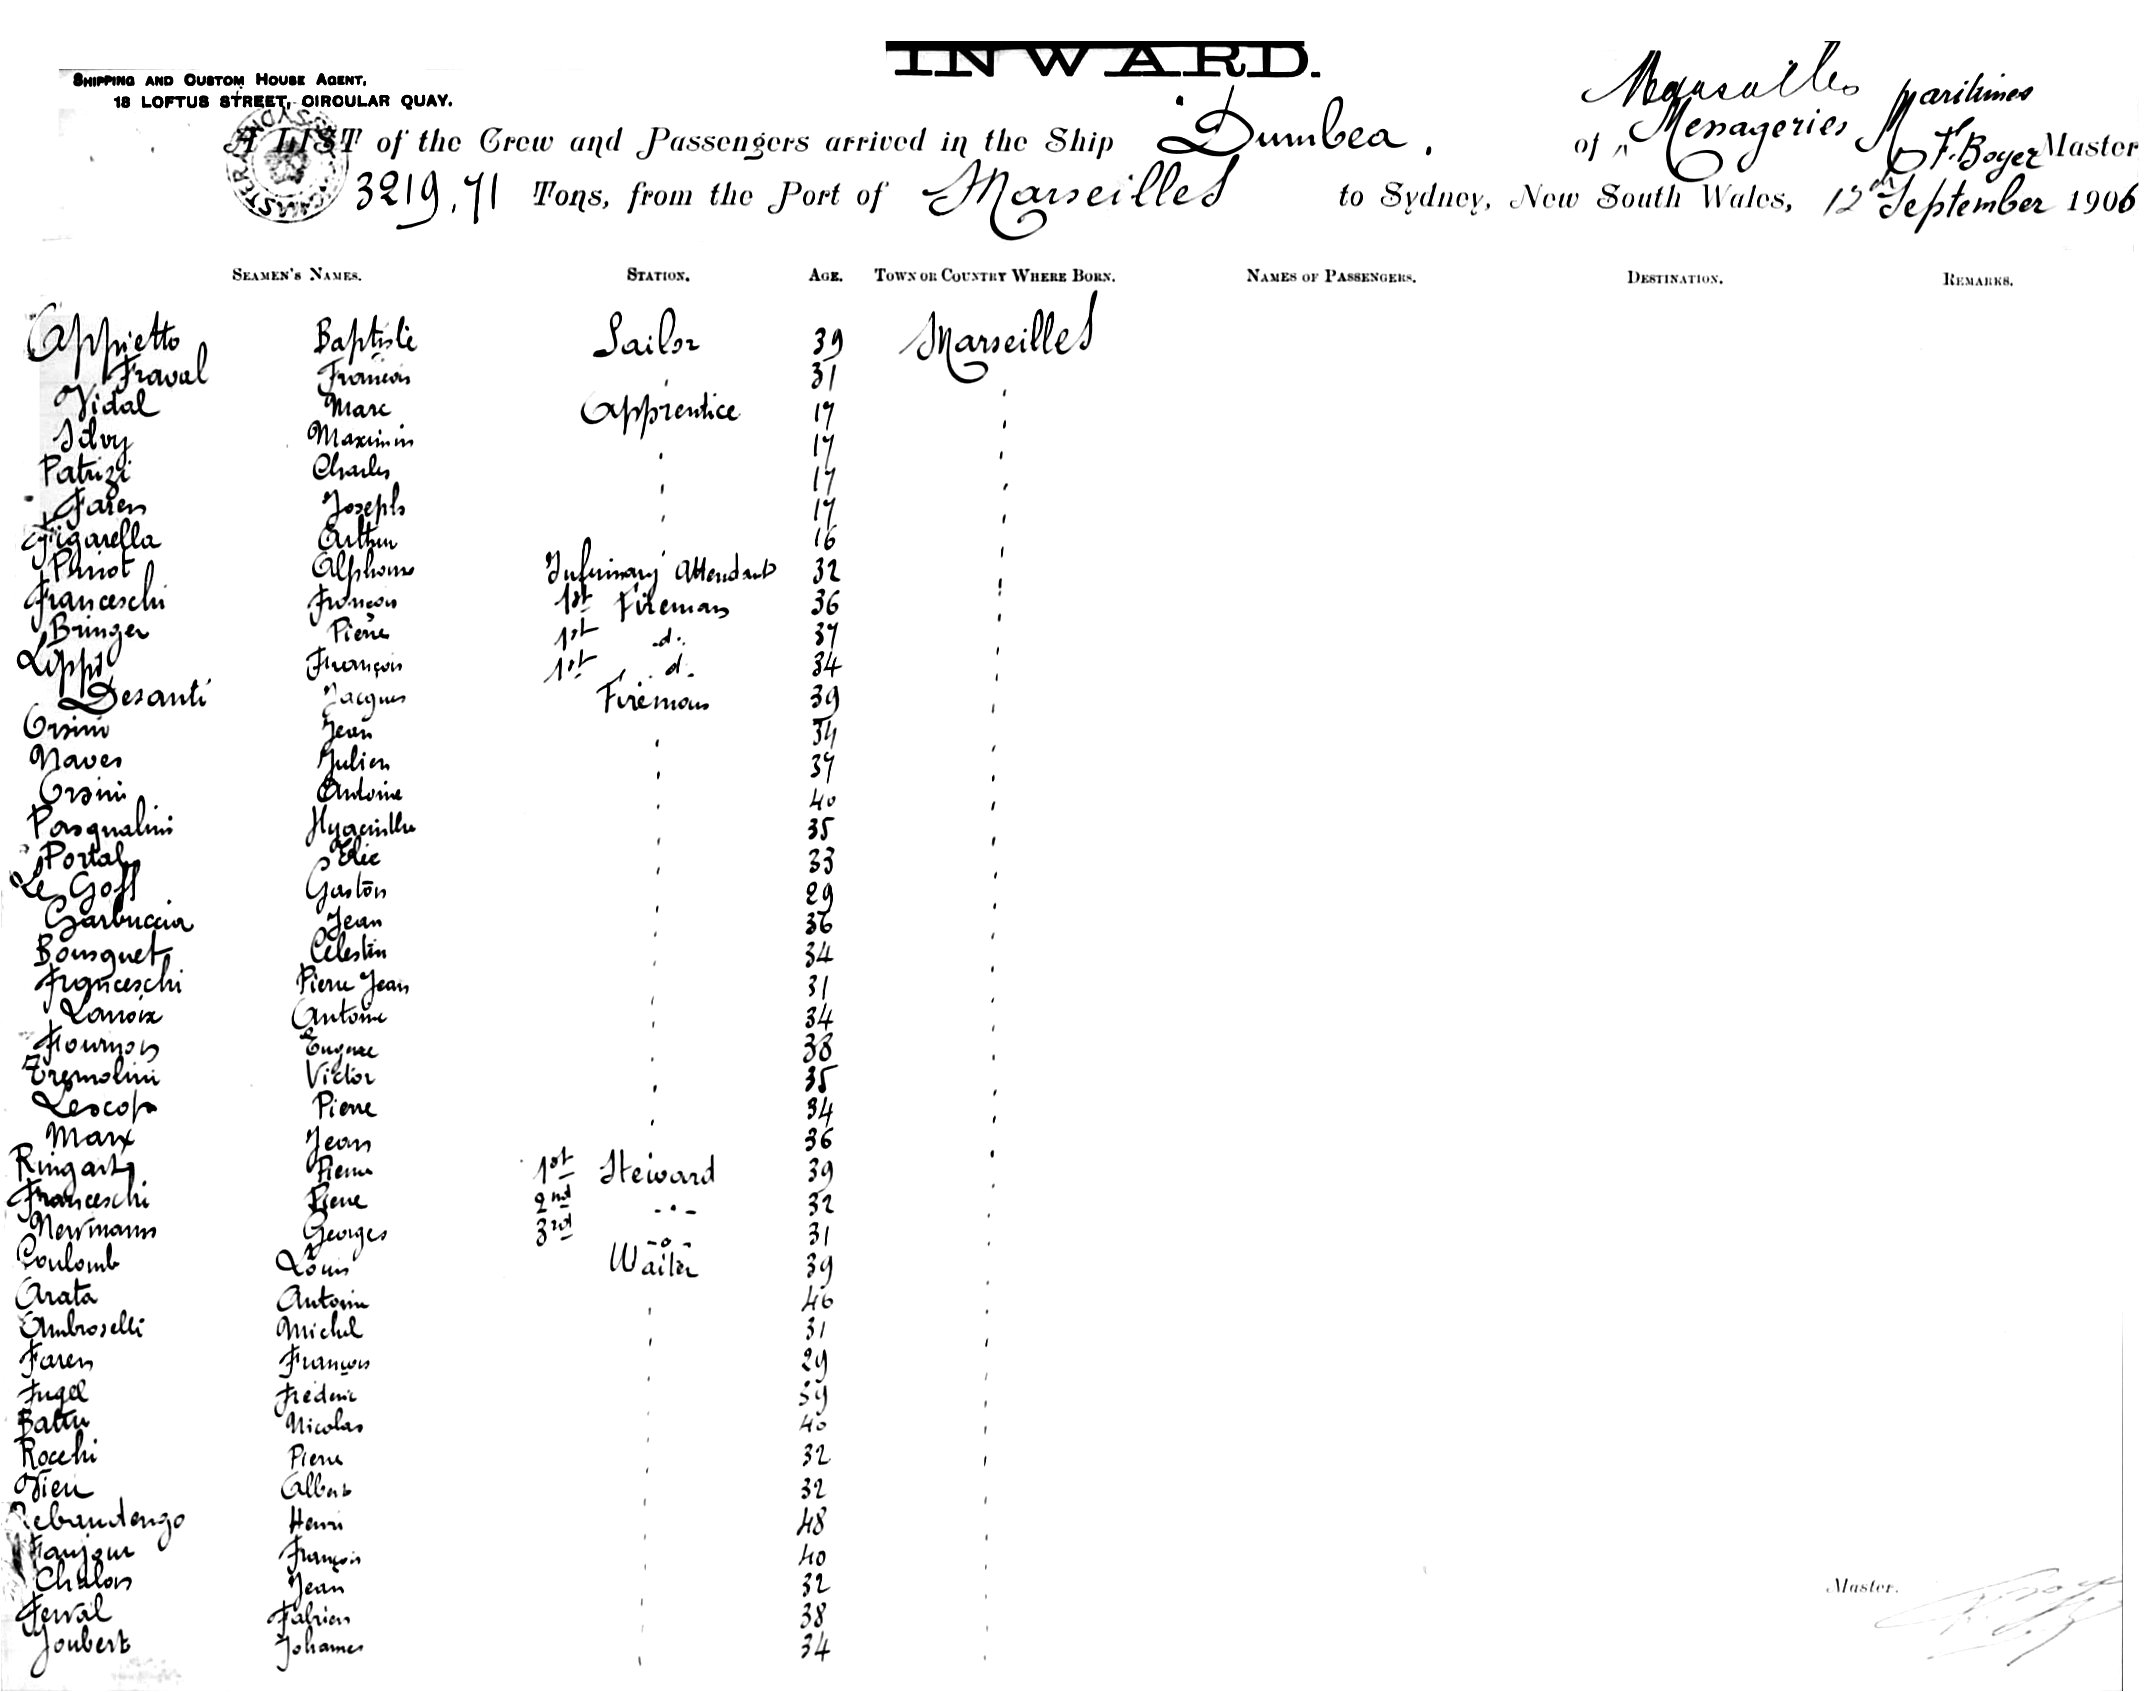 INWARD.
SHIPPING AND CUSTOM HOUSE AGENT,
18 LOFTUS STREET, CIRCULAR QUAY.
Marseilles
A LIST of the Crew and Passengers arrived in the Ship Dumbea. of Messageries Maritimes F. Boyer Master
3219.71 Tons, from the Port of Marseilles to Sydney, New South Wales, 12th September 1906
SEAMEN'S NAMES. STATION. AGE. TOWN OR COUNTRY WHERE BORN. NAMES OF PASSENGERS. DESTINATION. REMARKS.
Appietto Baptiste Sailor 39 Marseilles
Fraval François ' 31 '
Vidal Marc Apprentice 17 '
Silvy Maximin ' 17 '
Patrizi Charles ' 17 '
Faren Joseph ' 17 '
Figarella Arthur ' 16 '
Pinot Alphonse Infirmary Attendant 32 '
Franceschi François 1st Fireman 36 '
Bringer Pierre 1st d. 37 '
Lippi François 1st d. 34 '
Desanti Jacques Fireman 39 '
Orsini Jean ' 34 '
Naves Julien ' 37 '
Orsini Antoine ' 40 '
Pasqualini Hyacinthe ' 35 '
Portal Elie ' 33 '
Le Goff Gaston ' 29 '
Garbuccia Jean ' 36 '
Bousquet Célestin ' 34 '
Franceschi Pierre Jean ' 31 '
Lanoix Antoine ' 34 '
Fournon Eugene ' 38 '
Tremolini Victor ' 35 '
Lescop Pierre ' 34 '
Marx Jean ' 36 '
Ringart Pierre 1st Steward 39 '
Franceschi Pierre 2nd -"- 32 '
Newmann Georges 3rd -o- 31 '
Coulomb Louis Waiter 39 '
Arata Antoine ' 46 '
Ambroselli Michel ' 31 '
Faren François ' 29 '
Fugel Frederic ' 39 '
Battu Nicolas ' 40 '
Rocchi Pierre ' 32 '
Vieu Albert ' 32 '
Rebaudengo Henri ' 48 '
Fanjour François ' 40 '
Chalon Jean ' 32 '
Ferval Fabien ' 38 '
Joubert Johannes ' 34 '
Master.